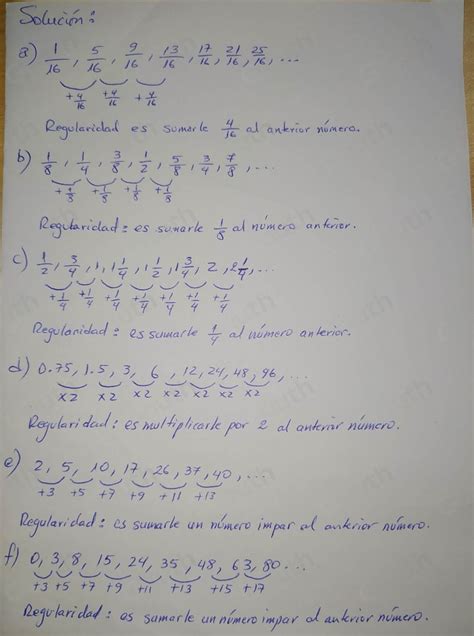 Solución:
a) 1/16, 5/16, 9/16, 13/16, 17/16, 21/16, 25/16, ...
+4/16 +4/16 +4/16
Regularidad es sumarle 4/16 al anterior número.
b) 1/8, 1/4, 3/8, 1/2, 5/8, 3/4, 7/8, ...
+1/8 +1/8 +1/8 +1/8
Regularidad: es sumarle 1/8 al número anterior.
c) 1/2, 3/4, 1, 1 1/4, 1 1/2, 1 3/4, 2, 2 1/4, ...
+1/4 +1/4 +1/4 +1/4 +1/4 +1/4 +1/4
Regularidad: es sumarle 1/4 al número anterior.
d) 0.75, 1.5, 3, 6, 12, 24, 48, 96, ...
x2 x2 x2 x2 x2 x2 x2
Regularidad: es multiplicarle por 2 al anterior número.
e) 2, 5, 10, 17, 26, 37, 40, ...
+3 +5 +7 +9 +11 +13
Regularidad: es sumarle un número impar al anterior número.
f) 0, 3, 8, 15, 24, 35, 48, 63, 80...
+3 +5 +7 +9 +11 +13 +15 +17
Regularidad: es sumarle un número impar al anterior número.